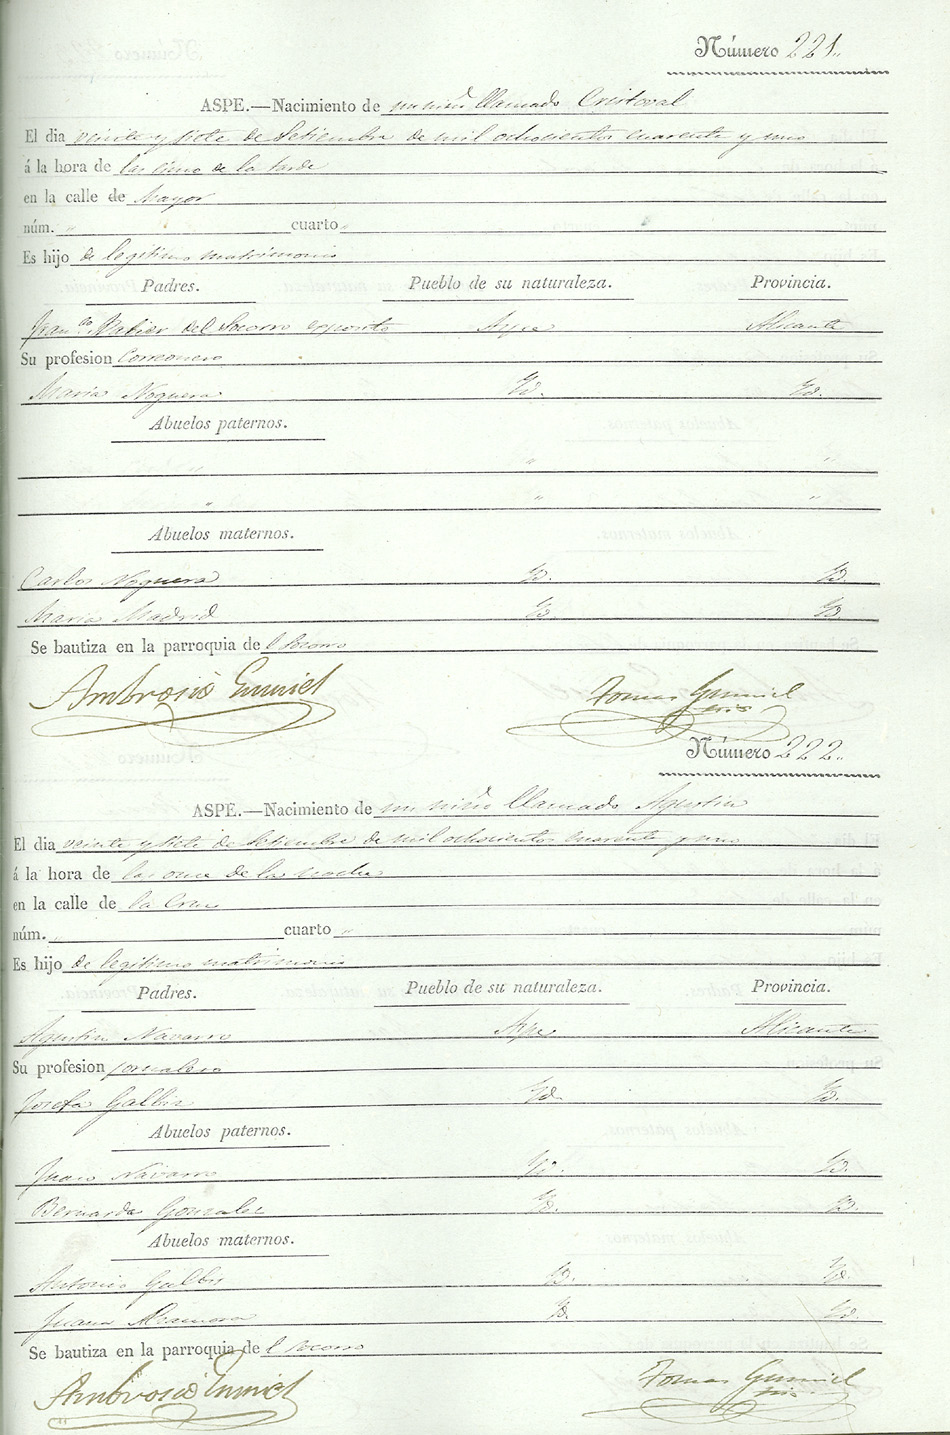 Número 221.
ASPE.—Nacimiento de un niño llamado Cristoval
El dia veinte y siete de Setiembre de mil ochocientos cuarenta y uno
á la hora de las cinco de la tarde
en la calle de Mayor
núm. " cuarto "
Es hijo de legitimo matrimonio
Padres. Pueblo de su naturaleza. Provincia.
Fran.co del Socorro esposito Aspe Alicante
Su profesion
Maria Noguera Yd. Yd.
Abuelos paternos.
" " "
" " "
Abuelos maternos.
Carlos Noguera Yd. Yd.
Maria Madrid Yd. Yd.
Se bautiza en la parroquia de l Socorro
Ambrosio
Tomas
Número 222.
ASPE.—Nacimiento de un niño llamado Agustin
El dia veinte y siete de Setiembre de mil ochocientos cuarenta y uno
á la hora de las once de la noche
en la calle de la Cruz
núm. " cuarto "
Es hijo de legitimo matrimonio
Padres. Pueblo de su naturaleza. Provincia.
Agustin Navarro Aspe Alicante
Su profesion jornalero
Josefa Galbis Yd. Yd.
Abuelos paternos.
Juan Navarro Yd. Yd.
Bernarda Gonzalez Yd. Yd.
Abuelos maternos.
Antonio Galbis Yd. Yd.
Juana Yd. Yd.
Se bautiza en la parroquia de l Socorro
Ambrosio
Tomas